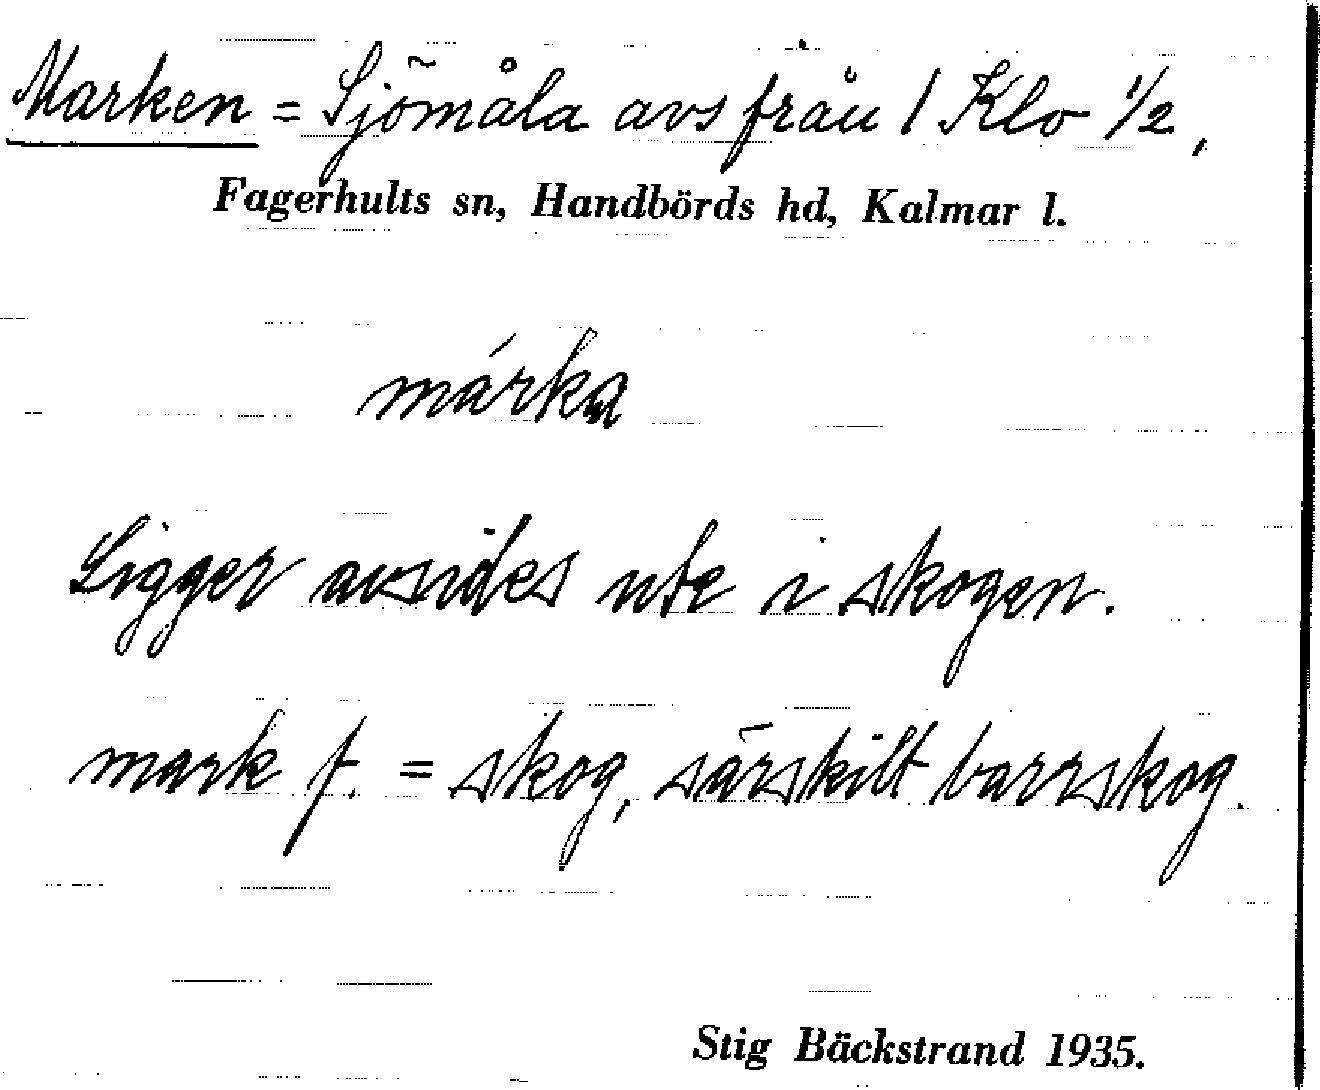 Marken = Sjömåla avs från 1 Klo 1/2,
Fagerhults sn, Handbörds hd, Kalmar l.
márka
Ligger avsides ute i skogen.
mark f. = skog, särskilt barrskog.
Stig Bäckstrand 1935.